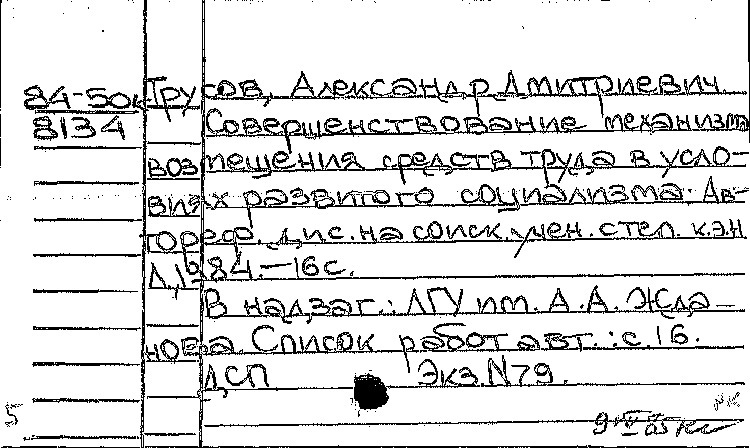 84-50к Трусов, Александр Дмитриевич.
8134 Совершенствование механизма
возмещения средств труда в усло-
виях развитого социализма. Ав-
тореф. дис. на соиск. учен. степ. к.э.н
Л, 1984.-16с.
В надзаг.: ЛГУ им. А.А. Жда-
нова. Список работ авт.: с.16.
ДСП Экз.N79.
5